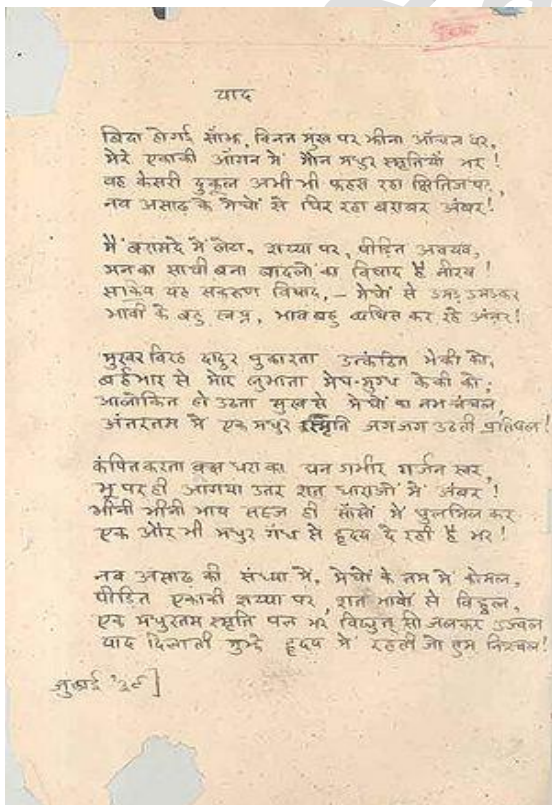 याद
बिदा होगई साँझ, विनत मुख पर झीना आँचल धर,
मेरे एकाकी आँगन में मौन मधुर स्मृतियाँ भर!
वह केसरी दुकूल अभी भी फहरा रहा क्षितिज पर,
नव असाढ़ के मेघों से घिर रहा बराबर अंबर!
मैं बरामदे में लेटा, शय्या पर, पीड़ित अवयव,
मन का साथी बना बादलों का विषाद है नीरव!
सक्रिय यह सकरुण विषाद,– मेघों से उमड़ उमड़कर
भावी के बहु स्वप्न, भाव बहु व्यथित कर रहे अंतर!
मुखर विरह दादुर पुकारता उत्कंठित भेकी को,
बर्हभार से मोर लुभाता मेघ-मुग्ध केकी को;
आलोकित हो उठता सुख से मेघों का नभ चंचल,
अंतरतम में एक मधुर स्मृति जग जग उठती प्रतिपल!
कंपित करता वक्ष धरा का घन गभीर गर्जन स्वर,
भू पर ही आगया उतर शत धाराओं में अंबर!
भीनी भीनी भाप सहज ही साँसों में घुलमिल कर
एक और भी मधुर गंध से हृदय दे रही है भर!
नव असाढ़ की संध्या में, मेघों के तम में कोमल,
पीड़ित एकाकी शय्या पर, शत भावों से विह्वल,
एक मधुरतम स्मृति पल भर विद्युत् सी जलकर उज्वल
याद दिलाती मुझे हृदय में रहती जो तुम निश्चल!
जुलाई '३९]